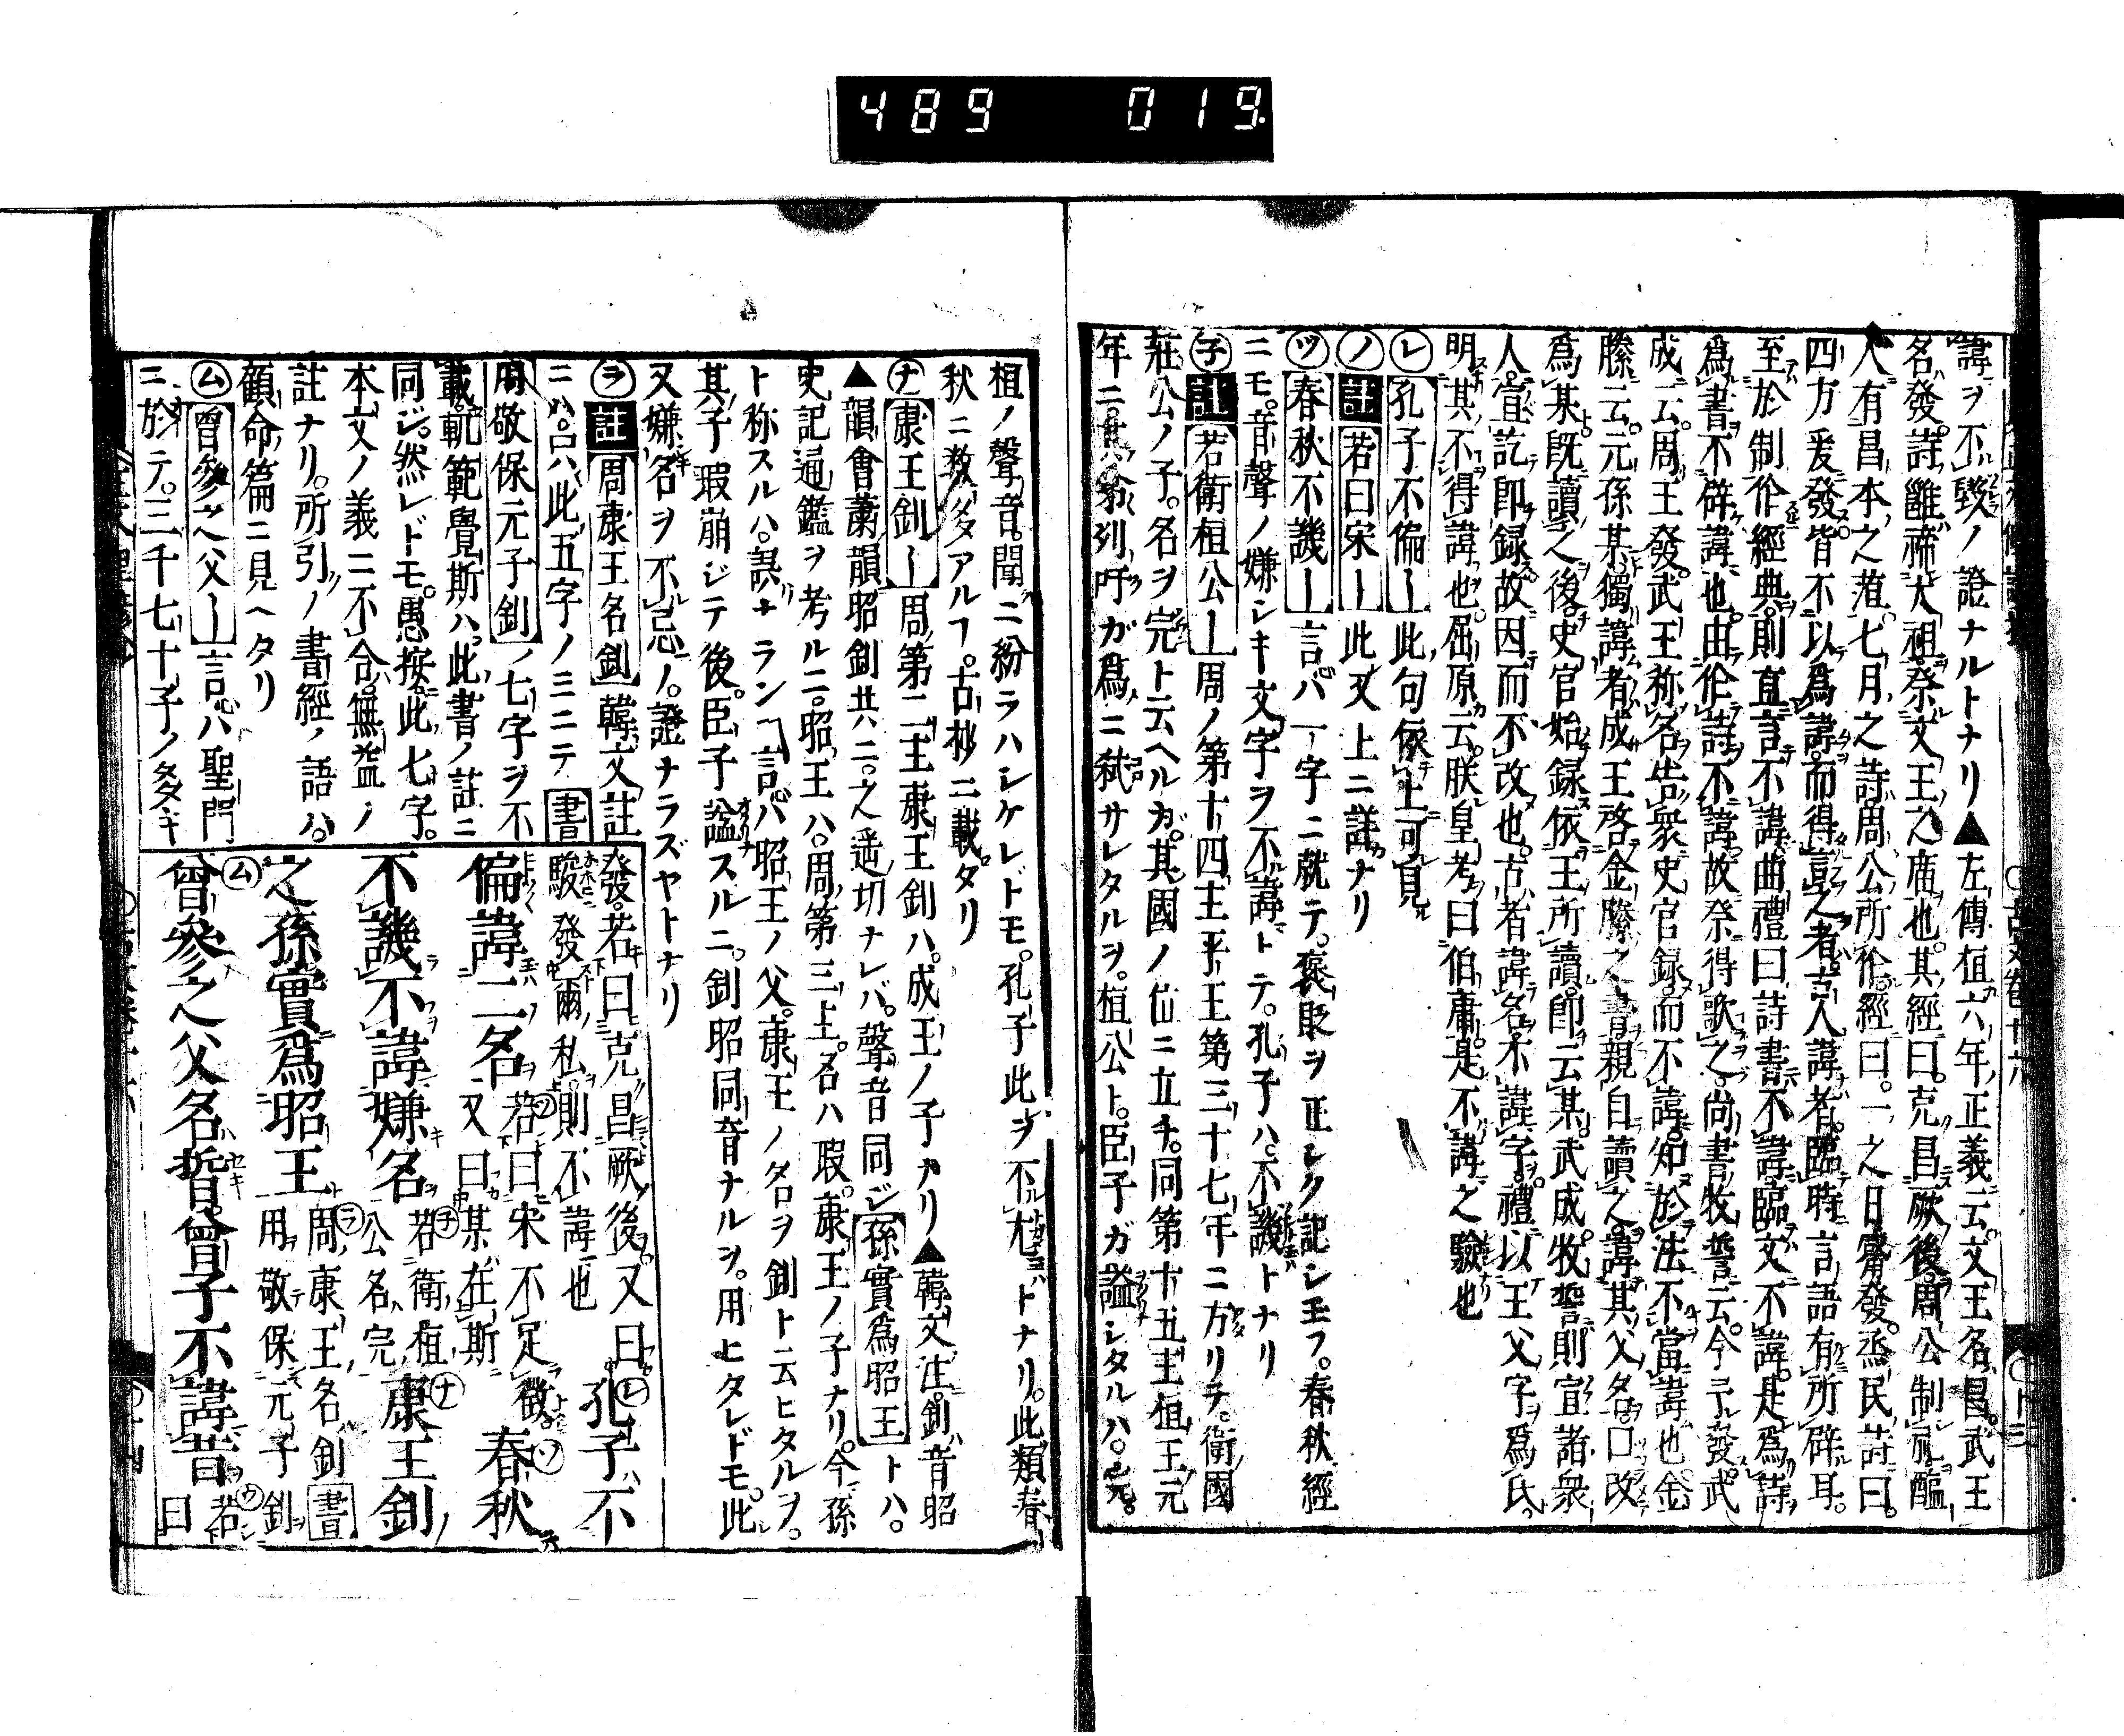 489 019
諱ヲ不毀ノ證ナルトナリ▲左傳桓六年正義云。文王名昌。武王
名發。詩雝禘大祖祭文王之廟也。其經曰。克昌厥後。周公制禮醢
人有昌本之菹。七月之詩。周公所作。經曰。一之日觱發。烝民詩曰。
四方爰發。皆不以為諱。而得言之者。古人諱者。臨時言語有所辟耳。
至於制作經典。則直言不諱。曲禮曰詩書不諱。臨文不諱。是為詩
為書不辟諱也。由作詩不諱。故祭得歌之。尚書牧誓云。今予發。武
成云。周王發。武王称名告衆史官録。而不諱。知於法不當諱也。金
縢云。元孫某。獨諱者。成王啓金縢之書。親自讀之。諱其父名。口改
為某。既讀之後。史官始録。依王所讀。即云某。武成。牧誓則宣諸衆
人。宣訖即録。故因而不改也。古者諱名。不諱字。禮以王父字為氏。
明其不得諱也。屈原云。朕皇考曰伯庸。是不諱之驗也
㋹孔子不偏〡此句依上可見
㋨註若曰宋〡此又上ニ詳カナリ
㋡春秋不譏〡言バ一字ニ就テ。褒貶ヲ正シク記シ玉フ。春秋經
ニモ。音聲ノ嫌シキ文字ヲ不諱トテ。孔子ハ。不譏トナリ
子註若衛桓公〡周ノ第十四主平王第三十七年ニ方リテ。衛國
莊公ノ子。名ヲ完ト云ヘルガ。其國ノ位ニ立チ。同第十五主桓王元
年ニ。其弟列吁ガ為ニ弑サレタルヲ。桓公ト。臣子ガ謚シタルハ。完。
桓ノ聲音。聞ニ紛ラハシケレドモ。孔子此ヲ不尤トナリ。此類春
秋ニ数多アルヿ。古抄ニ載タリ
㋤康王釗〡周第二主康王釗ハ。成王ノ子ナリ▲韓文注。釗音昭
▲韻會蕭韻昭釗共ニ。之遥切ナレバ。聲音同ジ孫實為昭王トハ。
史記通鑑ヲ考ルニ。昭王ハ。周第三主。名ハ瑕。康王ノ子ナリ。今孫
ト称スルハ。誤ナラン言バ昭王ノ父。康王ノ名ヲ釗ト云ヒタルヲ。
其子瑕崩ジテ後。臣子謚スルニ。釗昭同音ナルヲ。用ヒタレドモ。此
又嫌名ヲ不忌ノ。證ナラズヤトナリ
㋶註周康王名釗韓文註
ニハ。只此五字ノミニテ書
用敬保元子釗ノ七字ヲ不
載。軌範覺斯ハ。此書ノ註ニ
同ジ。然レドモ。愚按。此七字。
本文ノ義ニ不合。無益ノ
註ナリ。所引ノ書經ノ語ハ。
顧命篇ニ見ヘタリ
㋰曾參之父〡言バ聖門
ニ於テ。三千七十子ノ多キ
發。若曰克昌厥後。又曰
駿發爾私。則不諱也孔子不
偏諱二名若曰宋不足徵。
又曰某在斯春秋
不譏不諱嫌名若衛桓
公名完康王釗
之孫實為昭王周康王名釗書
用敬保元子釗
曾參之父名晳。曾子不諱昔若
曰